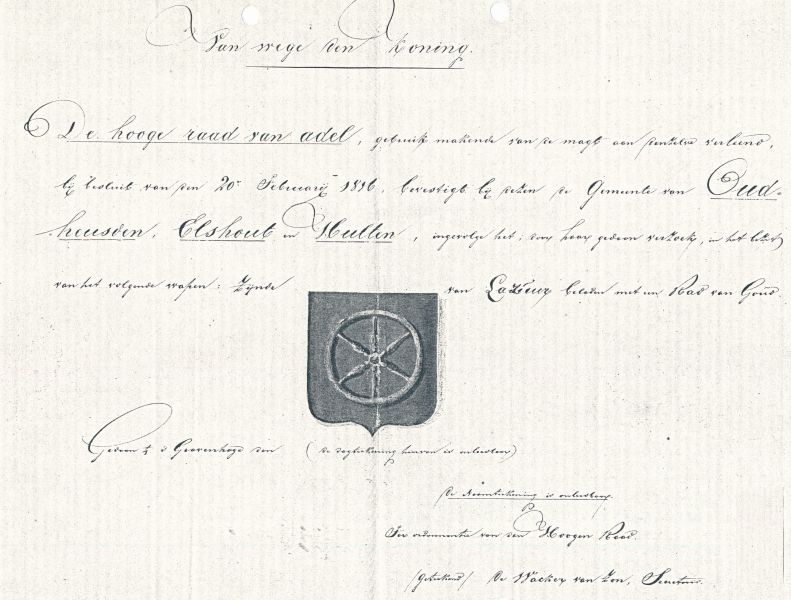 Van wege den Koning.
De hooge raad van adel, gebruik makende van de magt aan denzelve verleend,
bij besluit van den 20n February 1816, bevestigt bij dezen de Gemeente van Oud-
heusden, Elshout en Hulten, ingevolge het, door haar gedaan verzoek, in het bezit
van het volgende wapen: zijnde van Lazuur beladen met een Rad van Goud.
Gedaan in 's Gravenhage den (de dagteekening hiervan is onleesbaar)
de Naamteekening is onleesbaar.
Ter ordonnantie van den Hoogen Raad.
/Geteekend/ De Wacker van Zon, Secretaris.